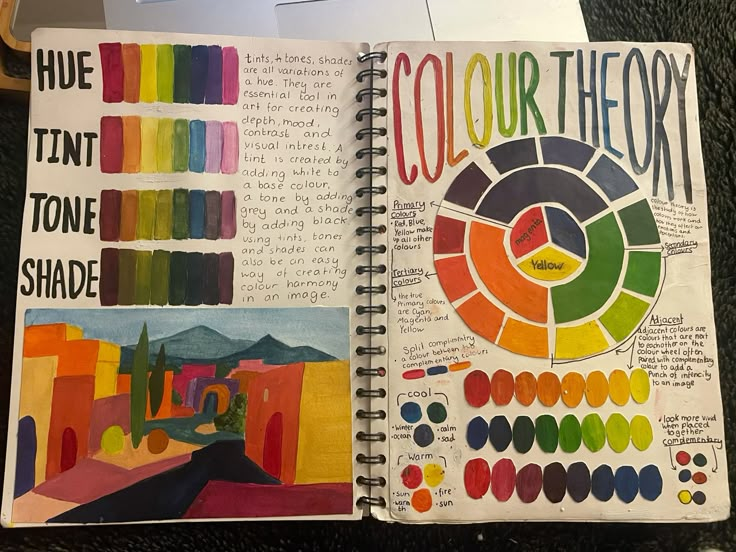 HUE
TINT
TONE
SHADE
tints, tones, shades
are all variations of
a hue. They are
essential tool in
art for creating
depth, mood,
contrast and
visual intrest. A
tint is created by
adding white to
a base colour,
a tone by adding
grey and a shade
by adding black.
using tints, tones
and shades can
also be an easy
way of creating
colour harmony
in an image.
COLOUR THEORY
Primary
colours
• Red, Blue,
Yellow make
up all other
colours
Tertiary
colours
the true
Primary colours
are Cyan,
Magenta and
Yellow
Split complimentry
• a colour between two
complementary colours
cool
• winter
• ocean
• calm
• sad
warm
• sun
• warm
th
• fire
• sun
magenta
Yellow
colour theory is
the study of how
Secondary
colours
Adjacent
adjacent colours are
colours that are next
to eachother on the
colour wheel often
paired with complementary
colour to add a
Punch of intencity
to an image
• look more vivid
when placed
together
complementary